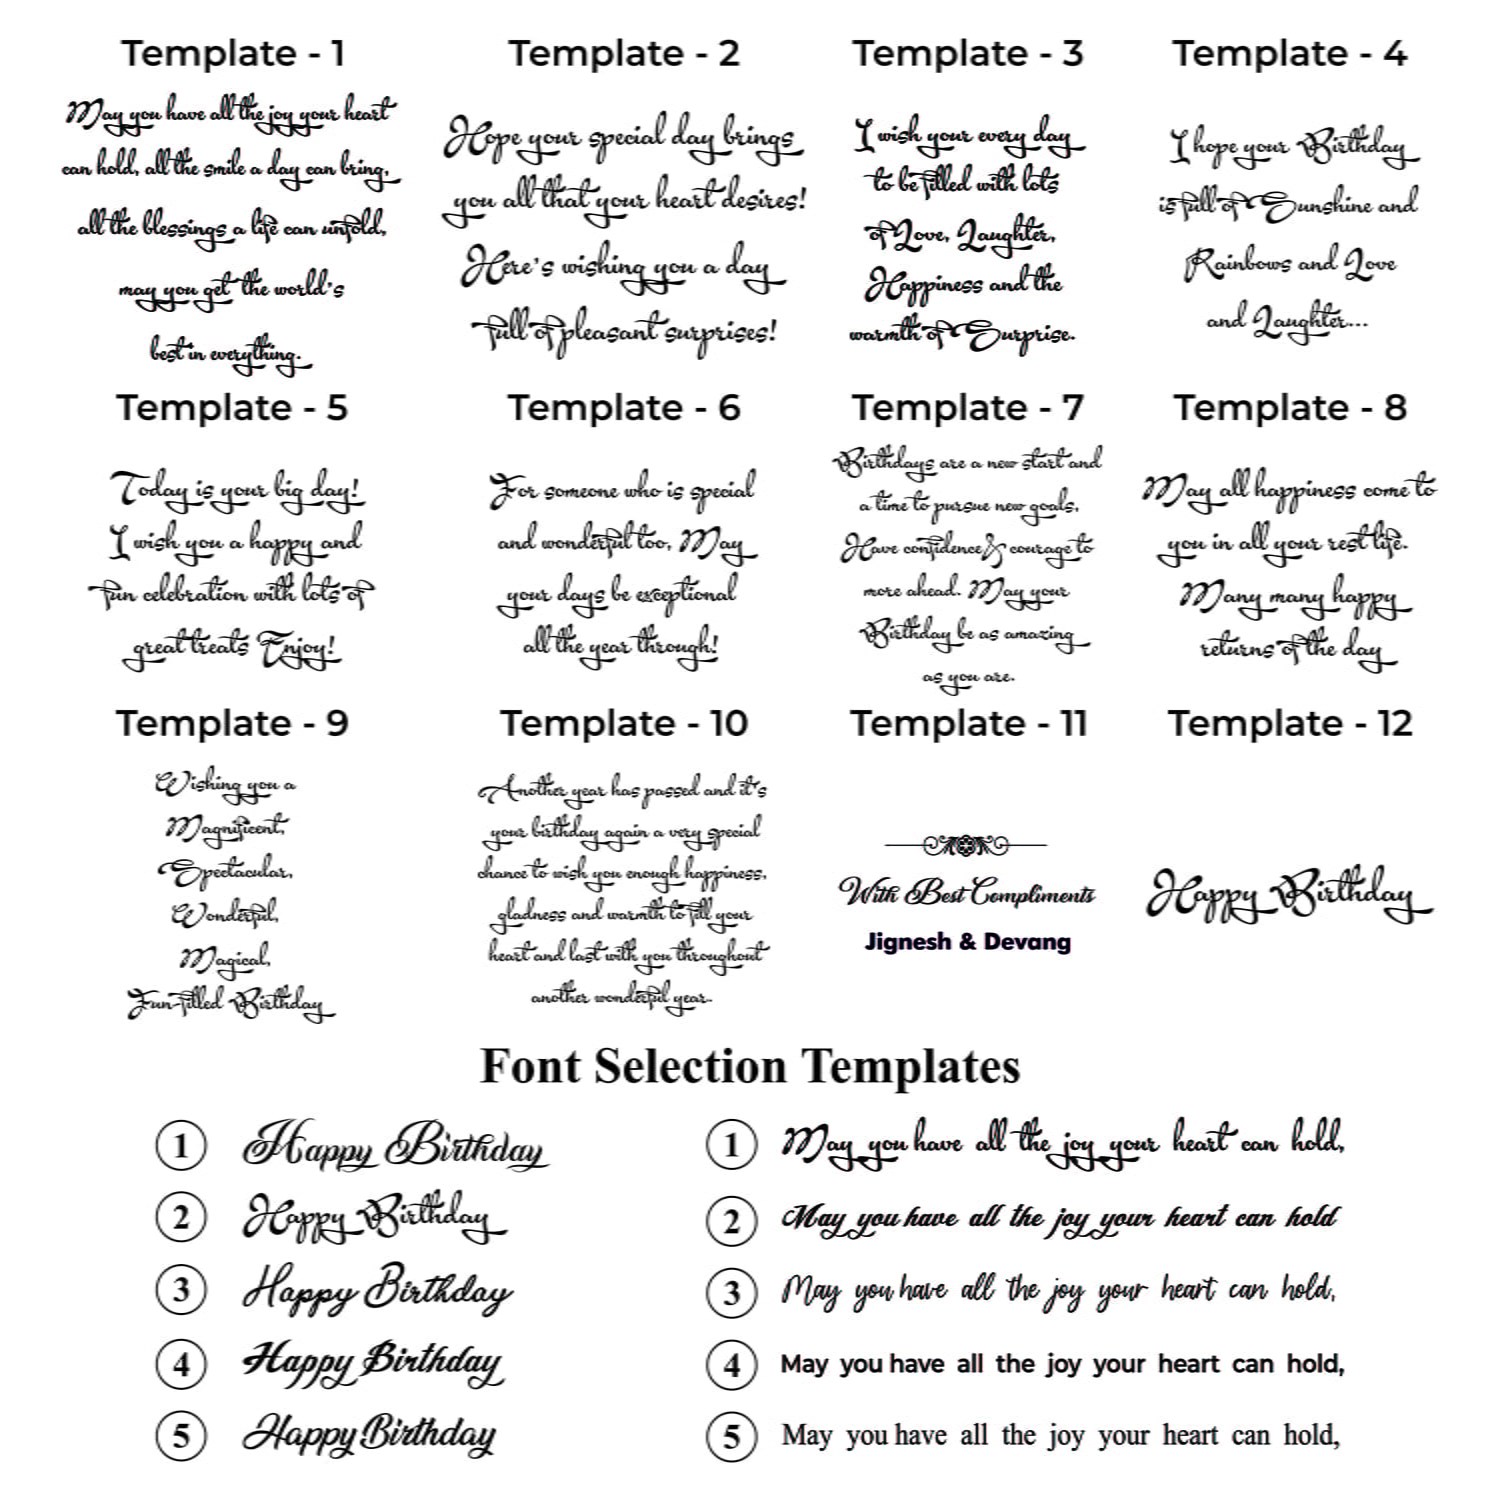 Template - 1
May you have all the joy your heart
can hold, all the smile a day can bring,
all the blessings a life can unfold,
may you get the world's
best in everything.
Template - 2
Hope your special day brings
you all that your heart desires!
Here's wishing you a day
full of pleasant surprises!
Template - 3
I wish your every day
to be filled with lots
of Love, Laughter,
Happiness and the
warmth of Surprise.
Template - 4
I hope your Birthday
is full of Sunshine and
Rainbows and Love
and Laughter...
Template - 5
Today is your big day!
I wish you a happy and
fun celebration with lots of
great treats Enjoy!
Template - 6
For someone who is special
and wonderful too, May
your days be exceptional
all the year through!
Template - 7
Birthdays are a new start and
a time to pursue new goals,
Have confidence & courage to
more ahead. May your
Birthday be as amazing
as you are.
Template - 8
May all happiness come to
you in all your rest life.
Many many happy
returns of the day
Template - 9
Wishing you a
Magnificent,
Spectacular,
Wonderful,
Magical,
Fun-filled Birthday
Template - 10
Another year has passed and it's
your birthday again a very special
chance to wish you enough happiness,
gladness and warmth to fill your
heart and last with you throughout
another wonderful year.
Template - 11
With Best Compliments
Jignesh & Devang
Template - 12
Happy Birthday
Font Selection Templates
1 Happy Birthday
2 Happy Birthday
3 Happy Birthday
4 Happy Birthday
5 Happy Birthday
1 May you have all the joy your heart can hold,
2 May you have all the joy your heart can hold
3 May you have all the joy your heart can hold,
4 May you have all the joy your heart can hold,
5 May you have all the joy your heart can hold,